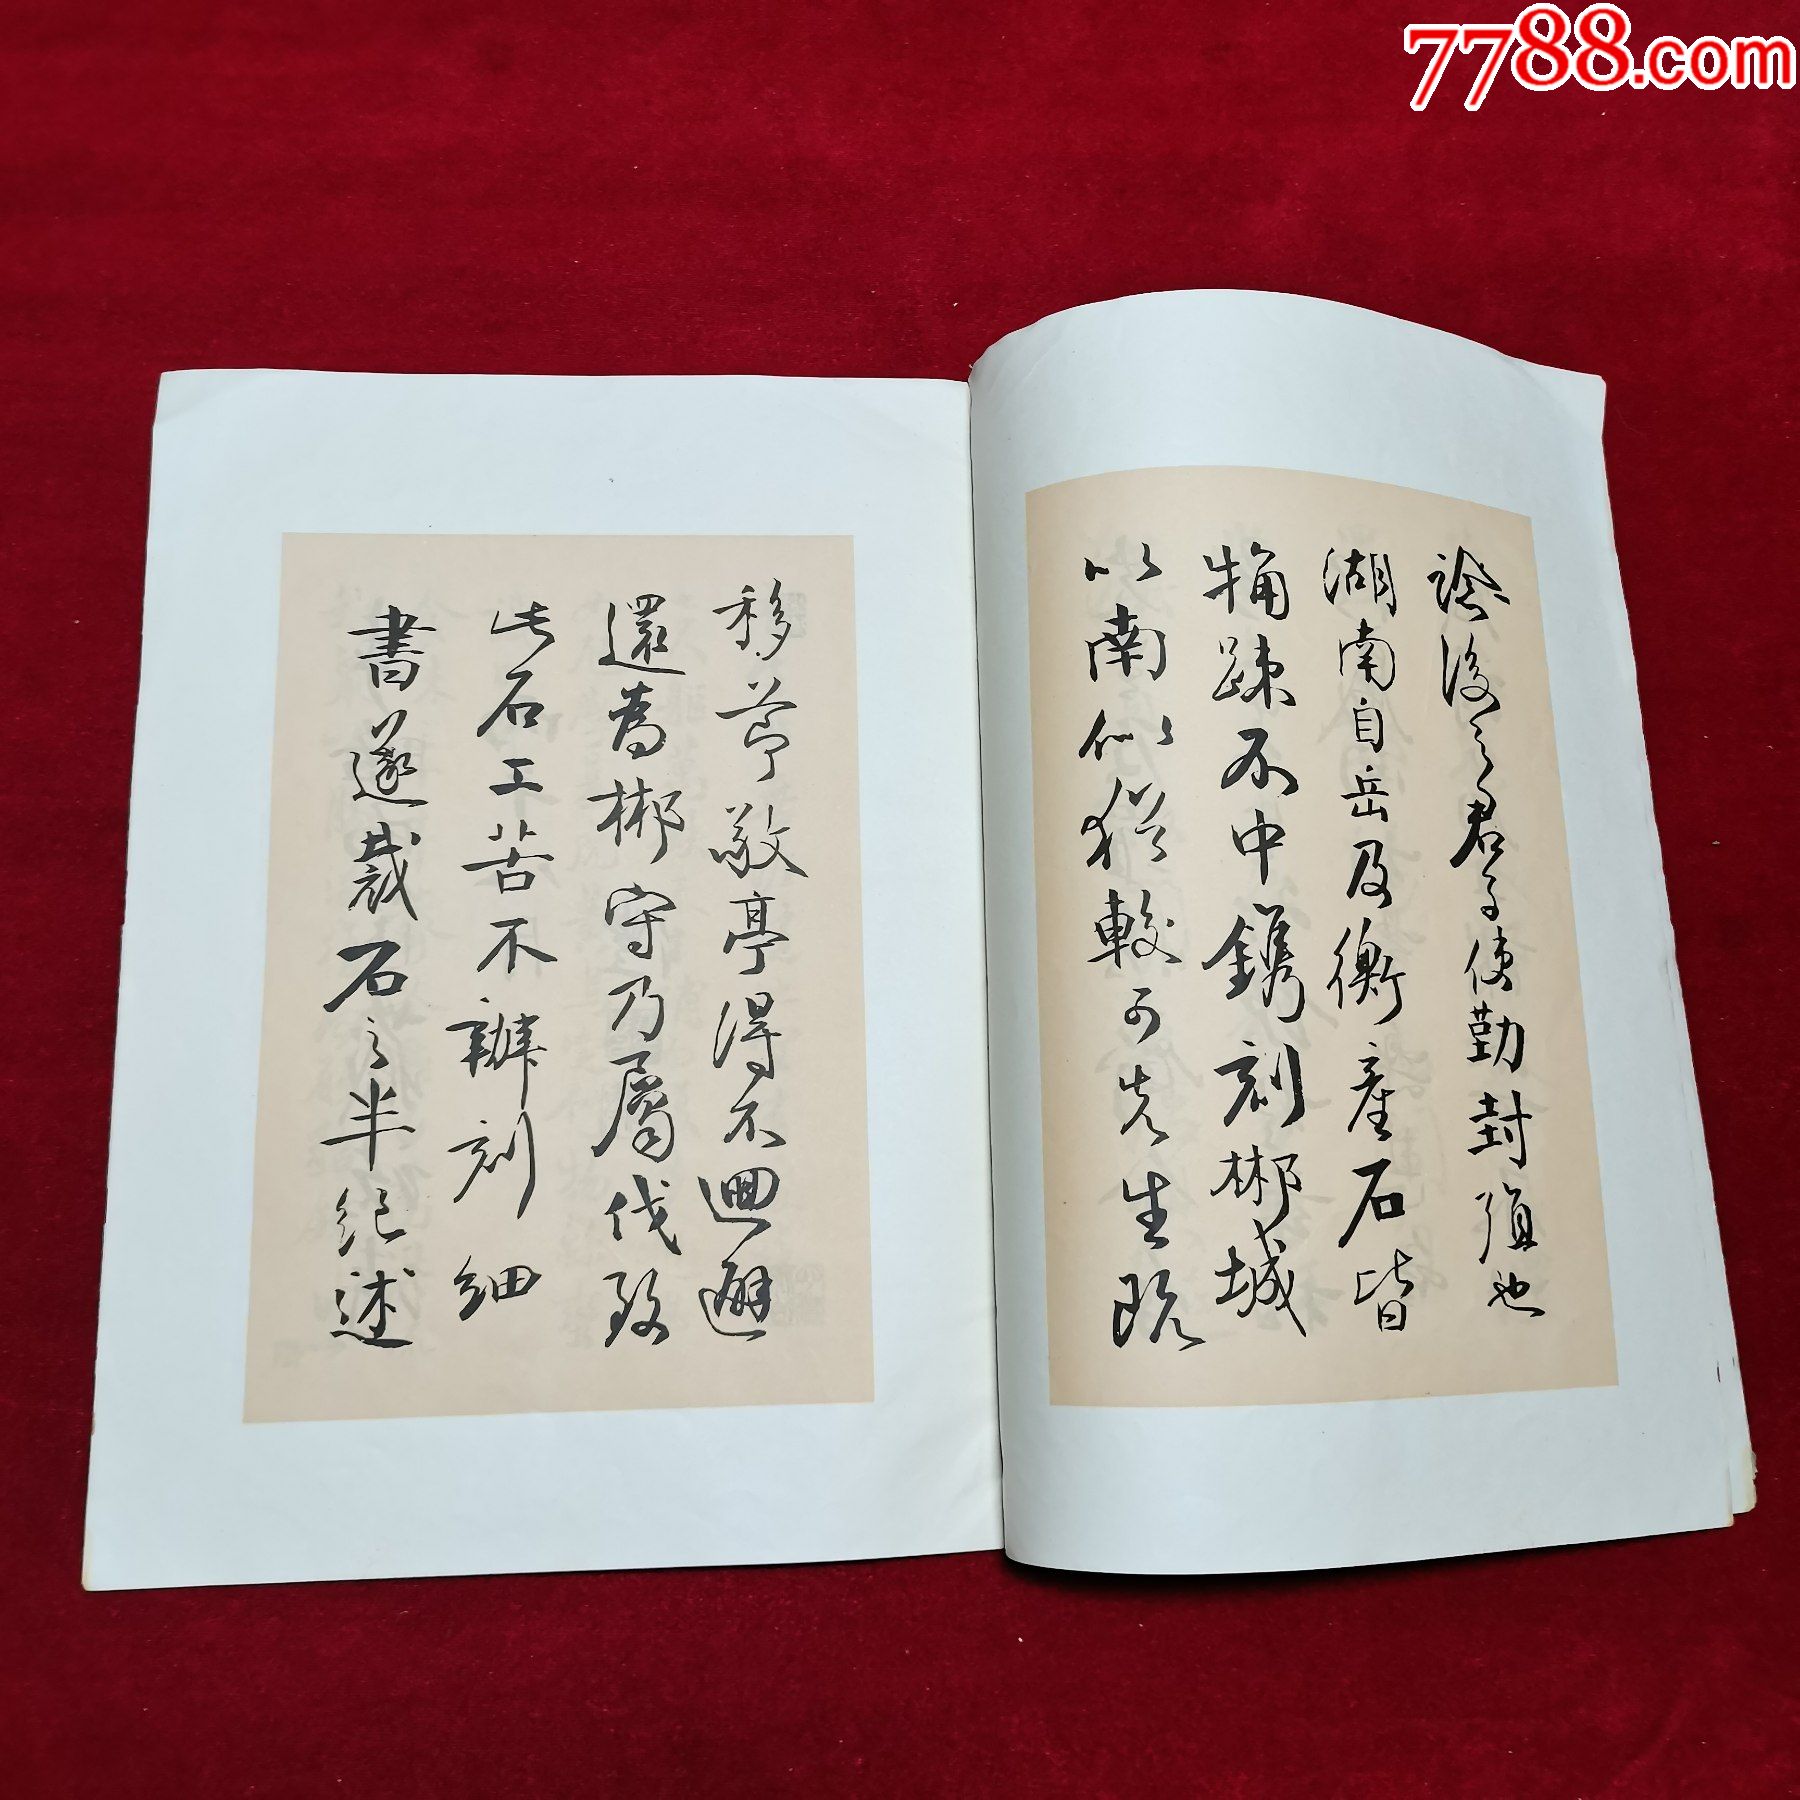 7788.com
諗後之君子使勤封殖也
湖南自岳及衡産石皆
犕踈不中鐫刻郴城
以南似猶較可先生既
移節敬亭得不迴避
還舊郴守乃屬伐致
此石工苦不辦刻細
書遂裁石之半紀述